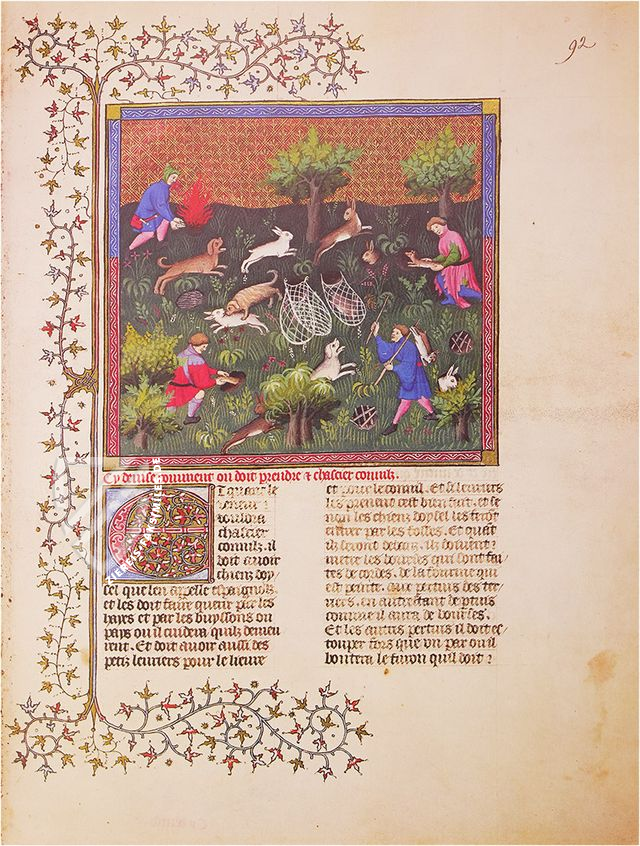 92
Cy deuise comment on doit prendre & chassier connilz.
Et quant le
veneur
voulora
chassier
connilz, il
doit auoir
chiens doy
sel que len appelle espaignolz
et les doit faire querir par les
hayes et par les buyssons ou
pays ou il cuidera quilz demeu
rent. Et doit auoir aussi des
petis leuriers pour le lieure
et pour le connil. Et se leuriers
les prenent cest bien fait, et se
non les chiens doysel les feront
entrer par les fosses. Et quāt
ilz seront dedens, ilz doiuent
mettre les bourses qui sont fai
tes de cordes, de la fourme qui
est painte, aux pertuis des ter
riers, en autretant de pertuis
comme il aura de bourses.
Et les autres pertuis il doit es
touper fors que vn par ou il
boutera le furon qui doit